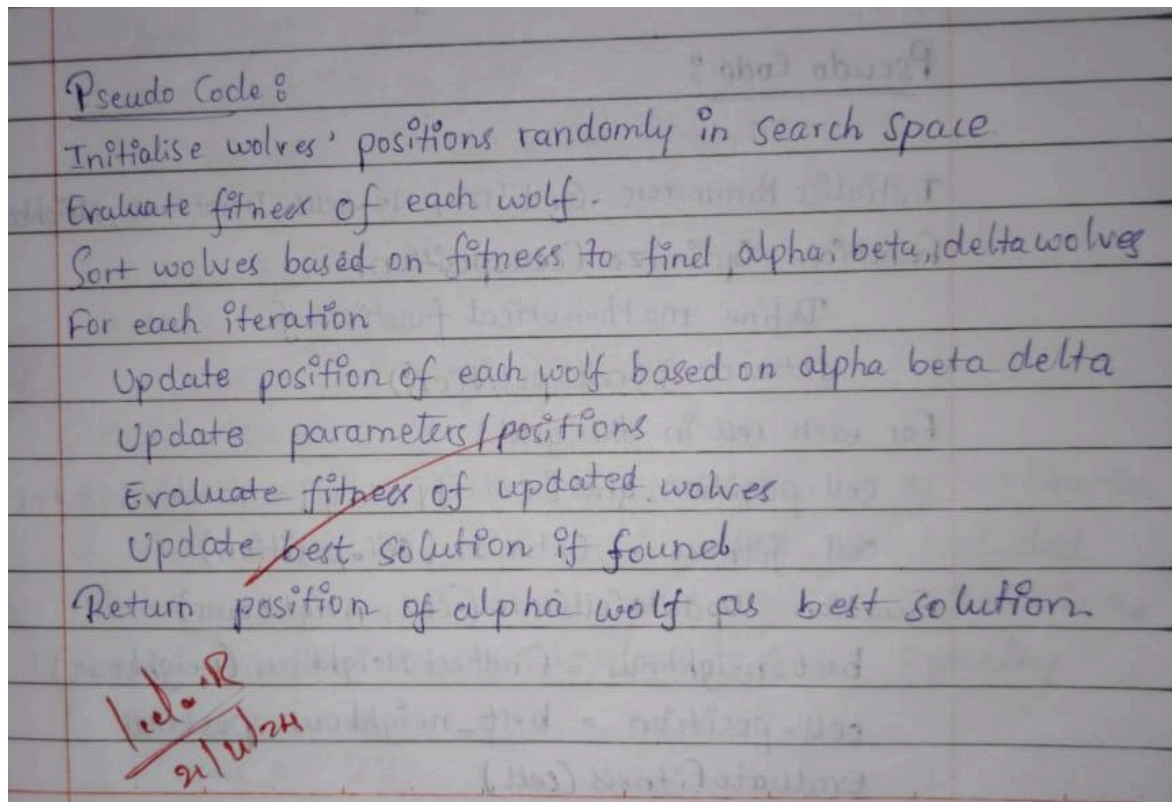 Pseudo Code :
Initialise wolves' positions randomly in search space
Evaluate fitness of each wolf.
Sort wolves based on fitness to find, alpha, beta, delta wolves
For each iteration
Update position of each wolf based on alpha beta delta
Update parameters / positions
Evaluate fitness of updated wolves
Update best solution if found
Return position of alpha wolf as best solution.